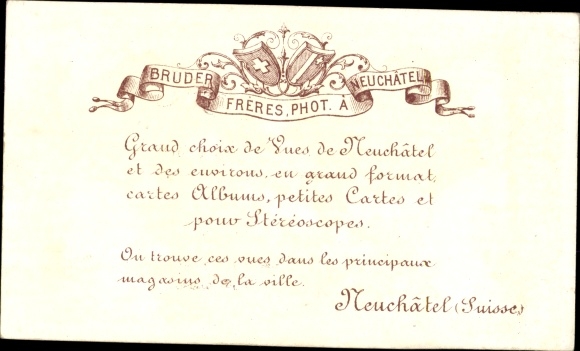 BRUDER FRÈRES, PHOT. À NEUCHÂTEL
Grand choix de Vues de Neuchâtel
et des environs, en grand format,
cartes Albums, petites Cartes et
pour Stéréoscopes.
On trouve ces vues dans les principaux
magasins de la ville.
Neuchâtel (Suisse)